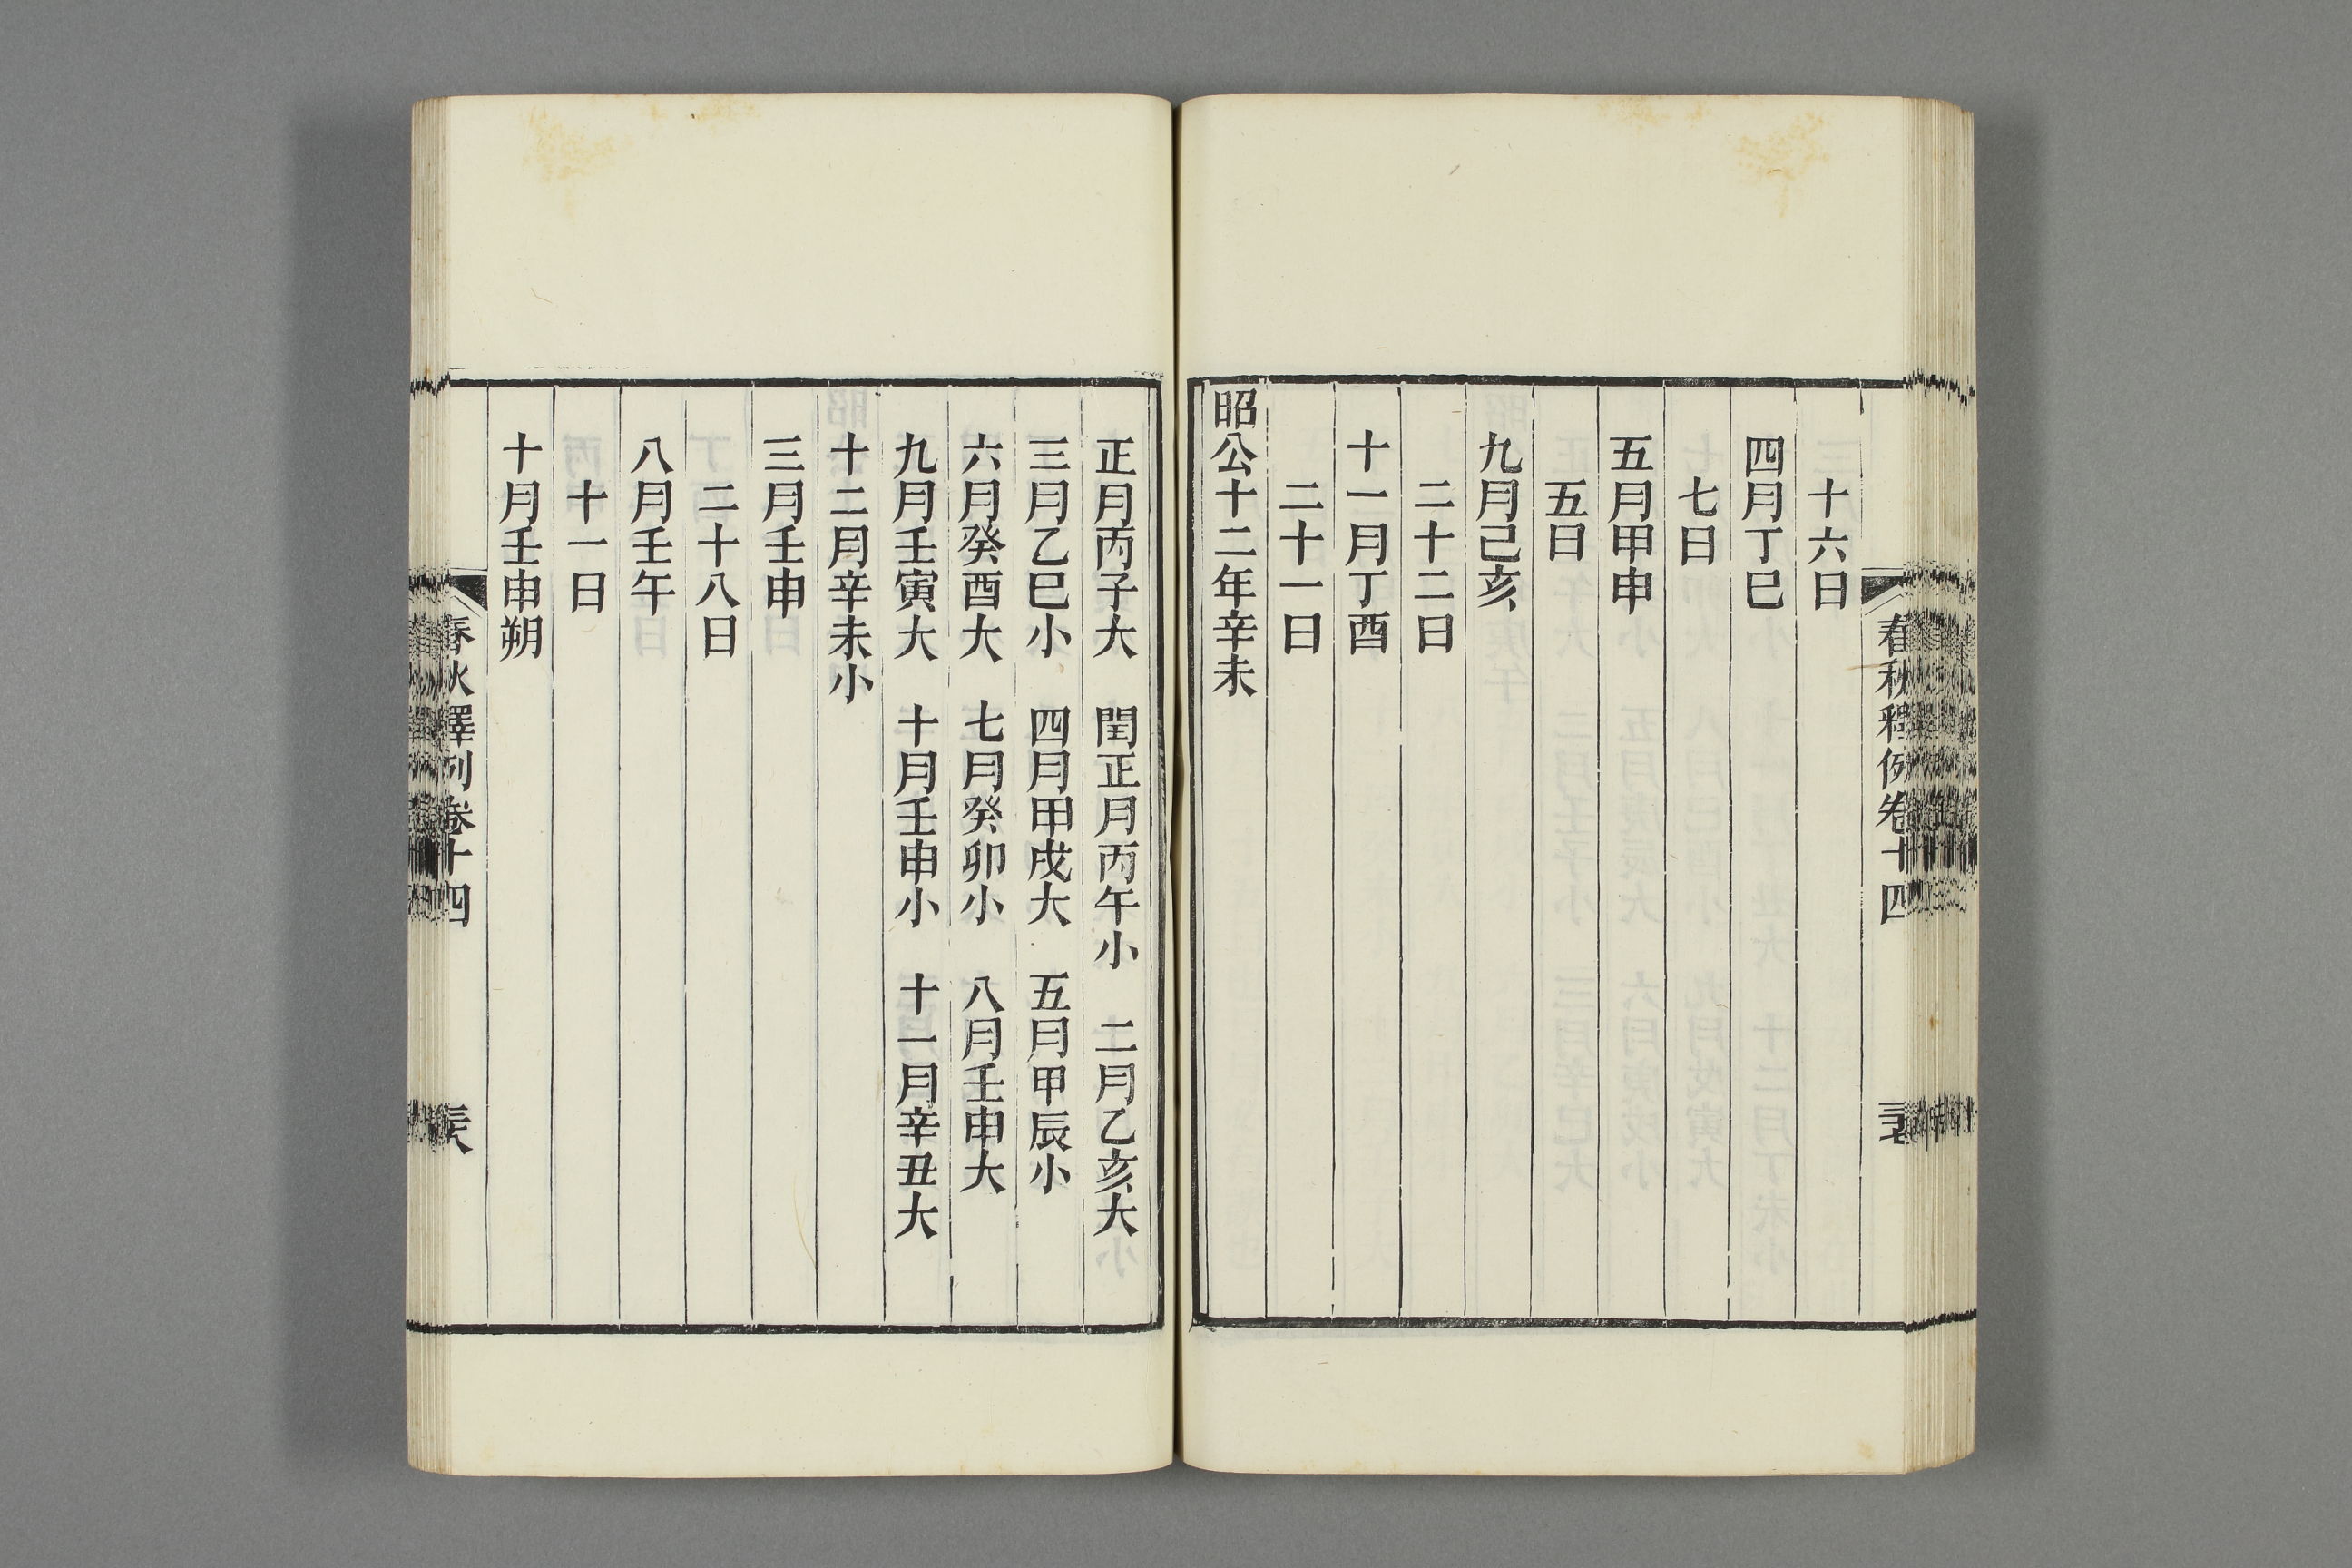 春秋釋例卷十四
十六日
四月丁巳
七日
五月甲申
五日
九月己亥
二十二日
十一月丁酉
二十一日
昭公十二年辛未
正月丙子大　閏正月丙午小　二月乙亥大
三月乙巳小　四月甲戌大　五月甲辰小
六月癸酉大　七月癸卯小　八月壬申大
九月壬寅大　十月壬申小　十一月辛丑大
十二月辛未小
三月壬申
二十八日
八月壬午
十一日
十月壬申朔
春秋釋例卷十四